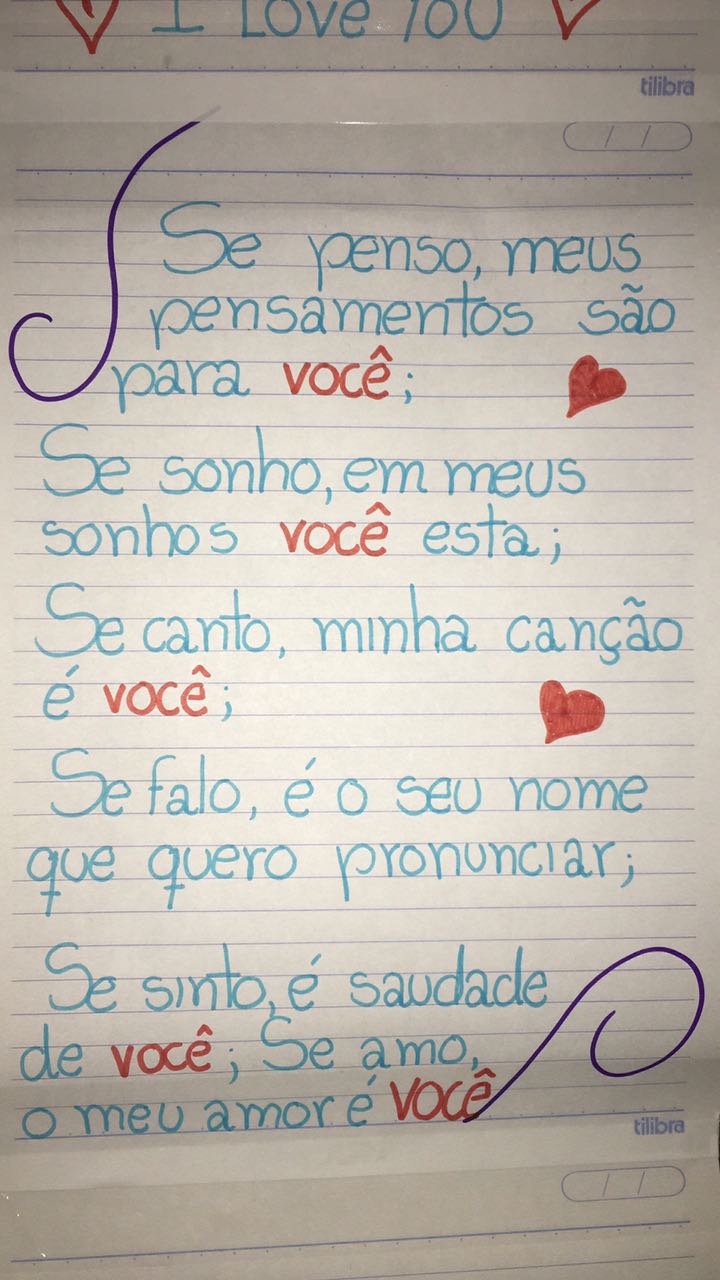 I Love YOU
tilibra
Se penso, meus
pensamentos são
para você;
Se sonho, em meus
sonhos você esta;
Se canto, minha canção
é você;
Se falo, é o seu nome
que quero pronunciar;
Se sinto, é saudade
de você; Se amo,
o meu amor é você
tilibra